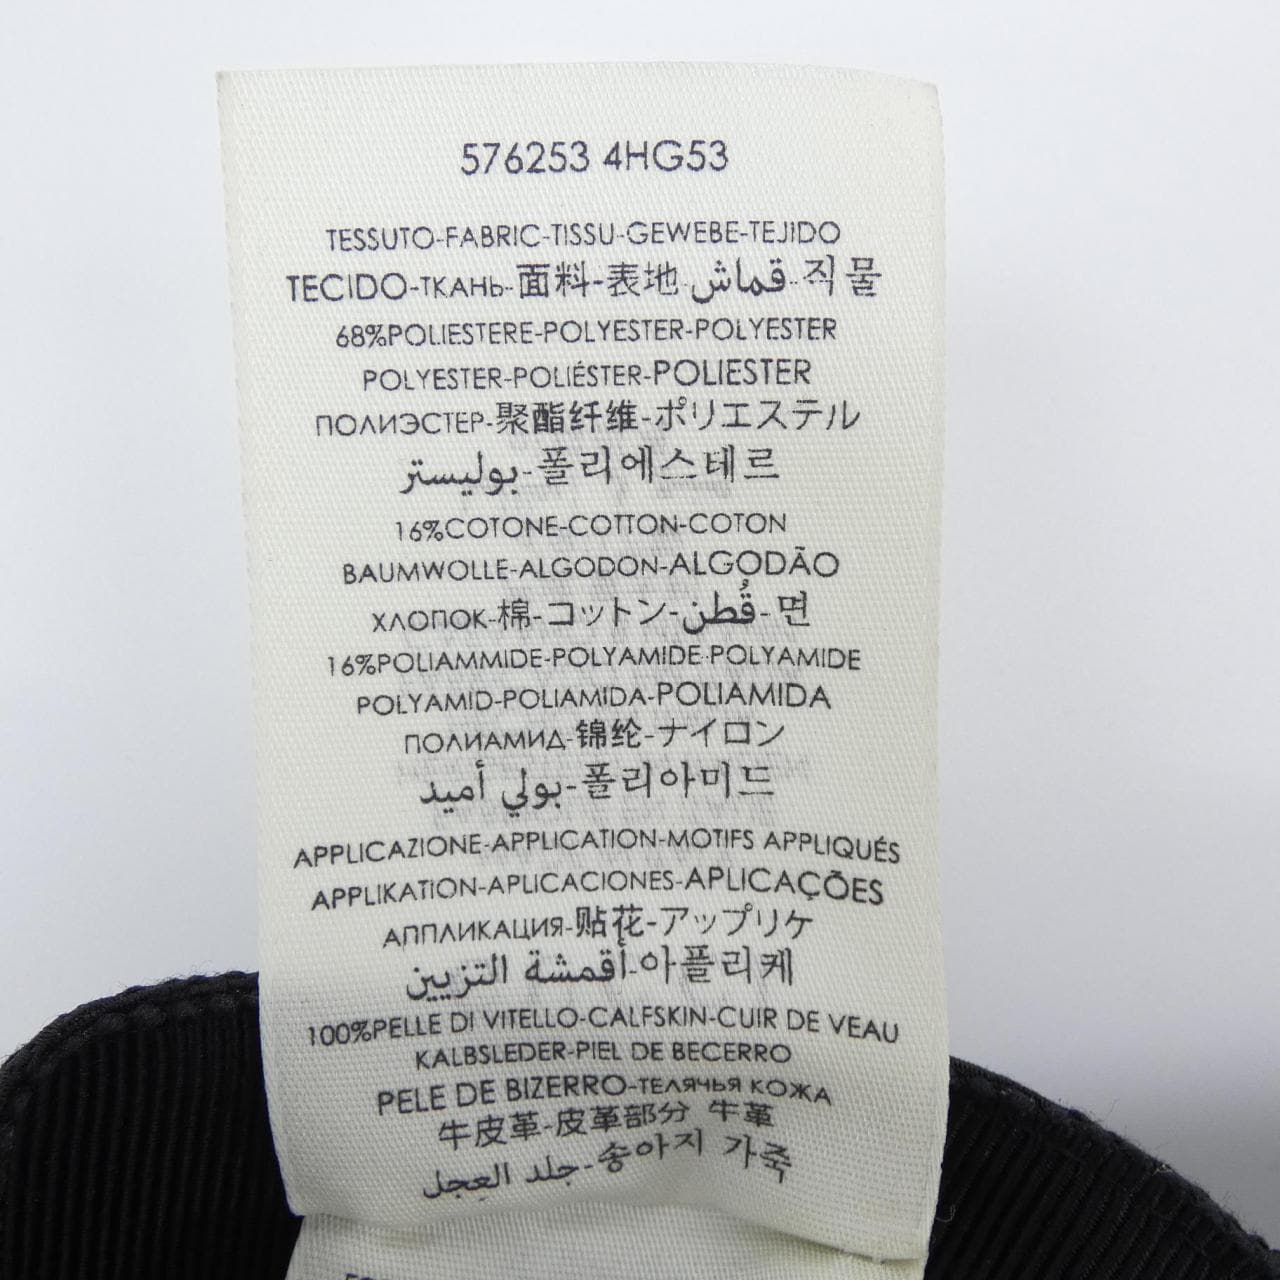 576253 4HG53
TESSUTO-FABRIC-TISSU-GEWEBE-TEJIDO
TECIDO-ТКАНЬ-面料-表地-قماش-직물
68%POLIESTERE-POLYESTER-POLYESTER
POLYESTER-POLIÉSTER-POLIESTER
ПОЛИЭСТЕР-聚酯纤维-ポリエステル
بوليستر-폴리에스테르
16%COTONE-COTTON-COTON
BAUMWOLLE-ALGODON-ALGODÃO
ХЛОПОК-棉-コットン-قُطن-면
16%POLIAMMIDE-POLYAMIDE-POLYAMIDE
POLYAMID-POLIAMIDA-POLIAMIDA
ПОЛИАМИД-锦纶-ナイロン
بولي أميد-폴리아미드
APPLICAZIONE-APPLICATION-MOTIFS APPLIQUÉS
APPLIKATION-APLICACIONES-APLICAÇÕES
АППЛИКАЦИЯ-贴花-アップリケ
أقمشة التزيين-아플리케
100%PELLE DI VITELLO-CALFSKIN-CUIR DE VEAU
KALBSLEDER-PIEL DE BECERRO
PELE DE BIZERRO-ТЕЛЯЧЬЯ КОЖА
牛皮革-皮革部分 牛革
جلد العِجل-송아지 가죽